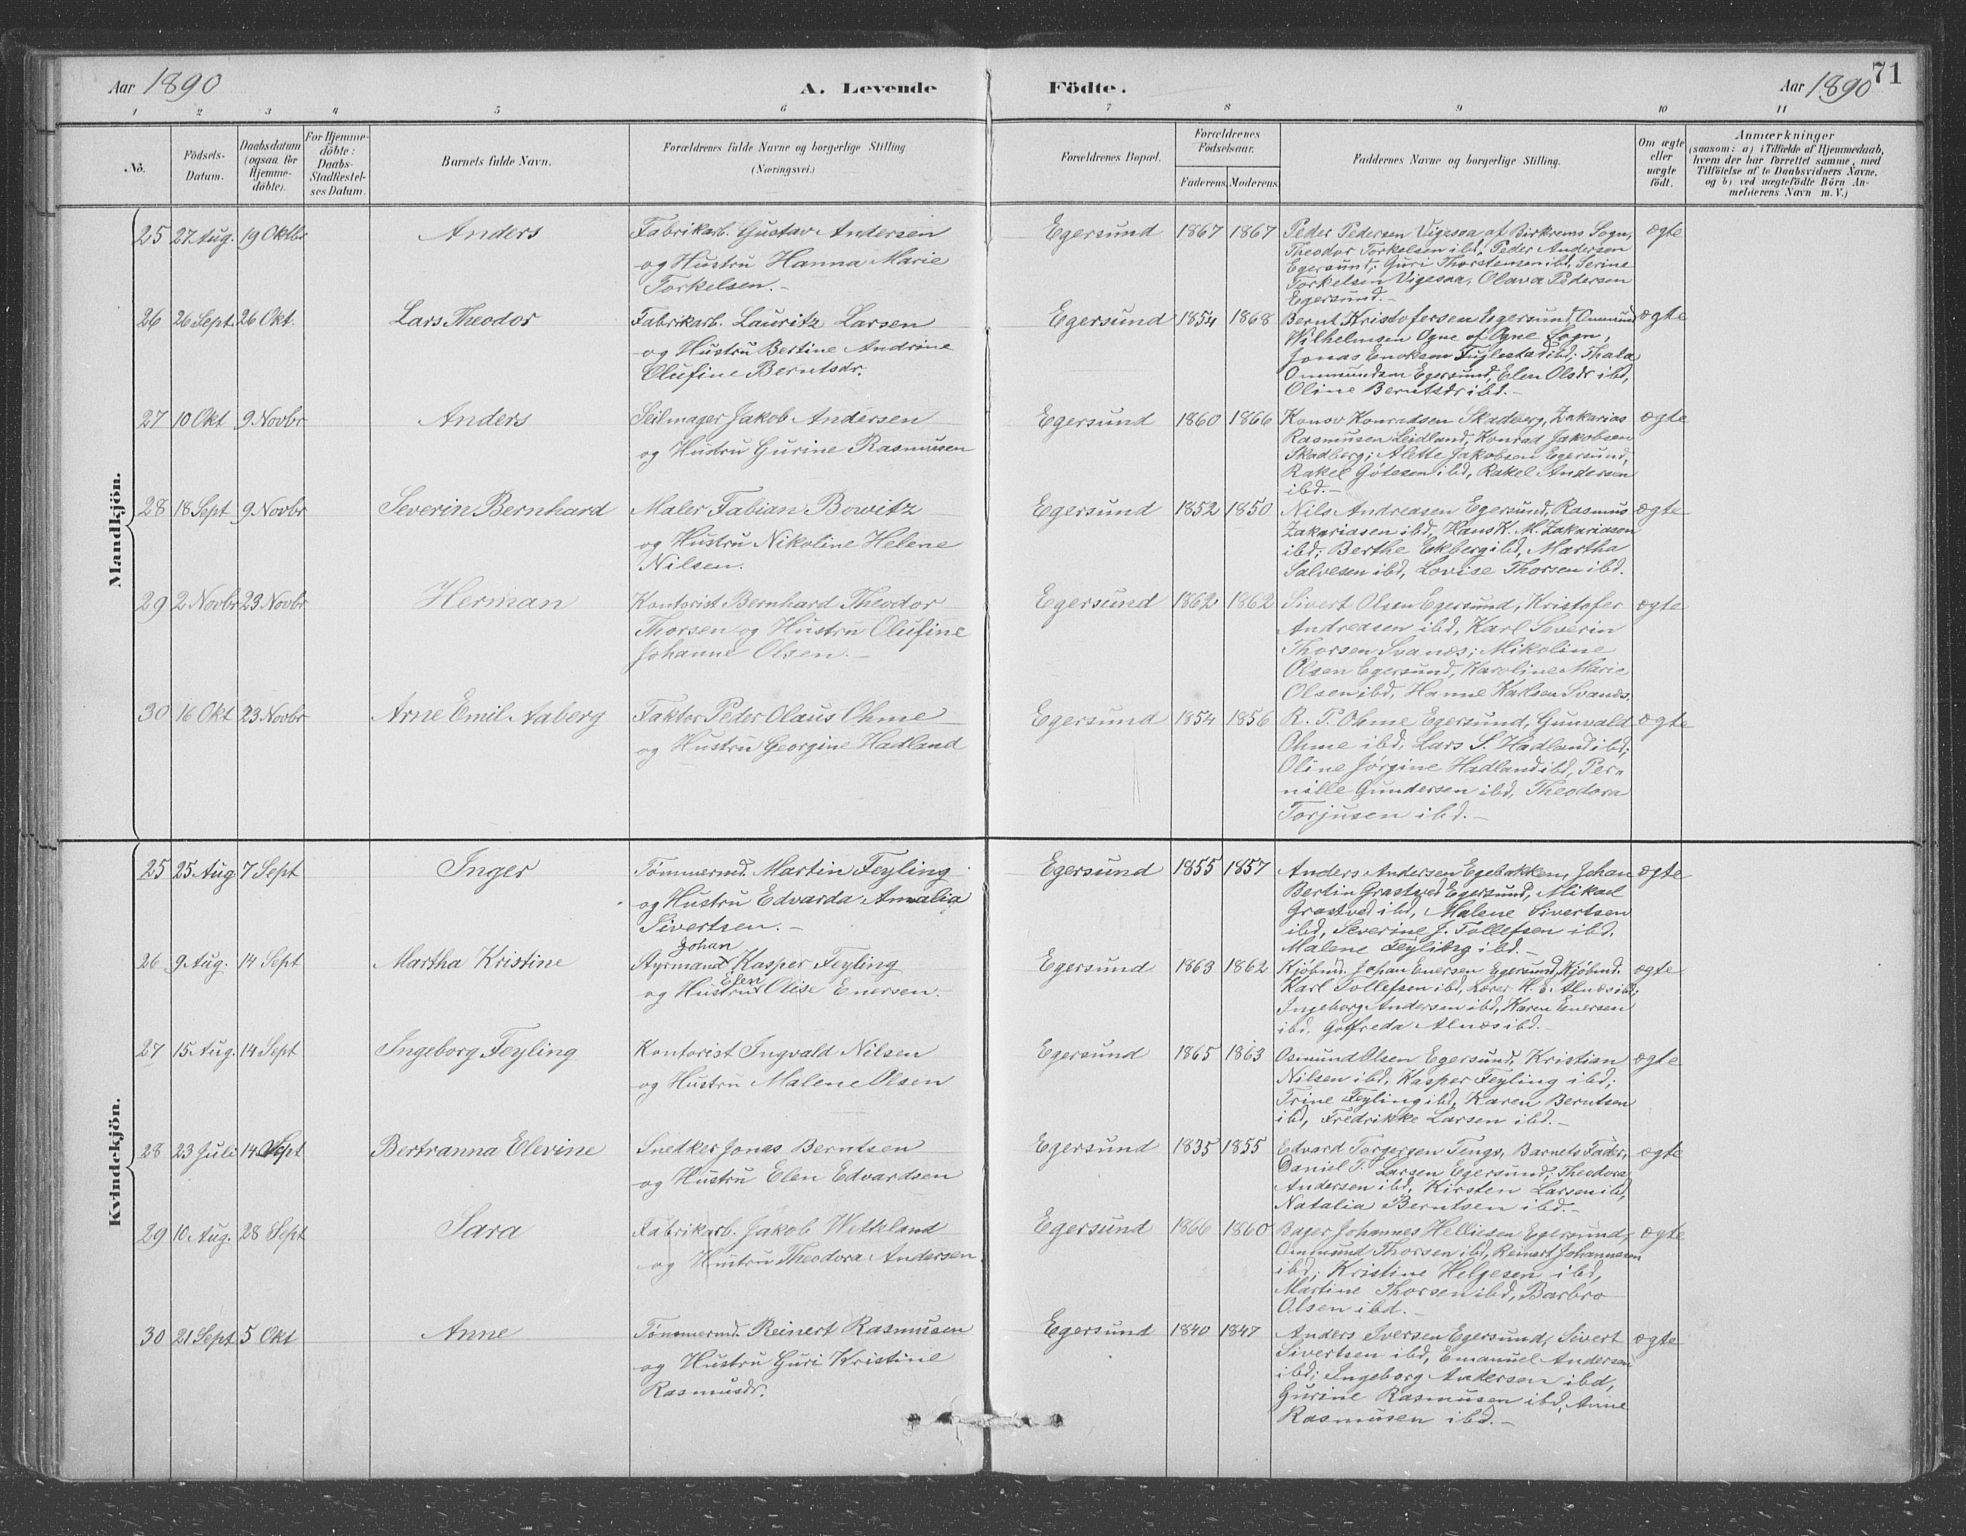 Aar 1890
A. Levende Födte.
Aar 1890
71
1 2 3 4 5 6 7 8 9 10 11
No.
Födsels-
Datum.
Daabsdatum
(ogsaa for
Hjemme-
döbte).
For Hjemme-
döbte:
Daabs-
Stadfæstel-
ses Datum.
Barnets fulde Navn.
Forældrenes fulde Navne og borgerlige Stilling
(Næringsvei.)
Forældrenes Bopæl.
Forældrenes
Födselsaar.
Faderens. Moderens.
Faddernes Navne og borgerlige Stilling.
Om ægte
eller
uægte
födt.
Anmærkninger
(saasom: a) i Tilfælde af Hjemmedaab,
hvem der har forrettet samme, med
Tilföielse af to Daabsvidners Navne,
og b) ved uægtefödte Börn An-
melderens Navn m. V.)
Mandkjön.
25 27 Aug. 19 Oktbr Anders
Fabrikarb. Gustav Andersen
og Hustru Hanna Marie
Torkelsen.-
Egersund 1867 1867
Peder Pedersen Vigesaa af Birkrems Sogn,
Theodor Torkelsen ibd, Peder Andersen
Egersund; Guri Thorstensen ibd, Serine
Torkelsen Vigesaa, Olava Pedersen
Egersund.-
ægte
26 26 Sept. 26 Okt. Lars Theodor
Fabrikarb. Lauritz Larsen
og Hustru Bertine Andrine
Olufine Berntsdr.
Egersund 1854 1868
Bernt Kristofersen Egersund, Ommund
Vilhelmsen Ogne af Ogne Sogn,
Jonas Enoksen Fuglestad ibd; Thala
Ommundsen Egersund, Elen Olsdr ibd,
Oline Berntsdr ibd.-
ægte
27 10 Okt 9 Novbr Anders
Seilmager Jakob Andersen
og Hustru Gurine Rasmussen
Egersund 1860 1866
Konov Konradsen Skadberg, Zakarias
Rasmusen Leidland, Konrad Jakobsen
Skadberg; Alette Jakobsen Egersund,
Rakel Gøtesen ibd, Rakel Andersen
ibd.-
ægte
28 18 Sept 9 Novbr Severin Bernhard
Maler Fabian Bowitz
og Hustru Nikoline Helene
Nilsen.
Egersund 1852 1850
Nils Andreasen Egersund, Rasmus
Zakariasen ibd, Hans K. M. Zakariasen
ibd; Berthe Ekberg ibd, Martha
Salvesen ibd, Lovise Thorsen ibd.
ægte
29 2 Novbr 23 Novbr Herman
Kontorist Bernhard Theodor
Thorsen og Hustru Olufine
Johanne Olsen.-
Egersund 1862 1862
Sivert Olsen Egersund, Kristofer
Andreasen ibd, Karl Severin
Thorsen Svanes; Mikoline
Olsen Egersund, Karoline Marie
Olsen ibd, Hanne Karlsen Svanes.
ægte
30 16 Okt 23 Novbr Arne Emil Aaberg
Faktor Peder Olaus Ohme
og Hustru Georgine Hadland
Egersund 1854 1856
R. P. Ohme Egersund, Gunvald
Ohme ibd, Lars S. Hadland ibd;
Oline Jørgine Hadland ibd, Per-
nille Gundersen ibd, Theodora
Torjusen ibd.-
ægte
Kvindekjön.
25 25 Aug 7 Sept Inger
Tømmermd. Martin Feyling
og Hustru Edvarda Amalia
Sivertsen.-
Egersund 1855 1857
Anders Andersen Egebakken, Johan
Bertin Grastved Egersund, Mikael
Grastved ibd, Malene Sivertsen
ibd, Severine J. Tollefsen ibd.
Malene Feyling ibd.-
ægte
26 9 Aug. 14 Sept Martha Kristine
Johan
Styrmand Kasper Feyling
Elen
og Hustru Olise Enersen.
Egersund 1863 1862
Kjøbmd. Johan Enersen Egersund, Kjøbmd.
Karl Tollefsen ibd, Lærer H. E. Alnæs ibd;
Ingeborg Andersen ibd, Karen Enersen
ibd. Gotfreda Alnæs ibd.-
ægte
27 15 Aug. 14 Sept Ingeborg Feyling
Kontorist Ingvald Nilsen
og Hustru Malene Olsen
Egersund 1865 1863
Osmund Olsen Egersund, Kristian
Nilsen ibd, Kasper Feyling ibd;
Trine Feyling ibd, Karen Berntsen
ibd, Fredrikke Larsen ibd.-
ægte
28 23 Juli 14 Sept Bertranna Elevine
Snedker Jonas Berntsen
og Hustru Elen Edvardsen
Egersund 1835 1855
Edvard Torgersen Tengs, Barnets Fader,
Daniel T. Larsen Egersund; Theodora
Andersen ibd, Kirsten Larsen ibd,
Natalia Berntsen ibd.-
ægte
29 10 Aug. 28 Sept Sara
Fabrikarb. Jakob Wetteland
og Hustru Theodora Andersen
Egersund 1866 1860
Bager Johannes Helliesen Egersund,
Ommund Thorsen ibd, Reinert Johannesen
ibd; Kristine Helgesen ibd,
Martine Thorsen ibd, Barbro
Olsen ibd.-
ægte
30 21 Sept 5 Okt Anne
Tømmermd. Reinert Rasmusen
og Hustru Guri Kristine
Rasmusdr.
Egersund 1840 1847
Anders Iversen Egersund, Sivert
Sivertsen ibd, Emanuel Andersen
ibd; Ingeborg Andersen ibd,
Gurine Rasmusen ibd, Anne
Rasmusen ibd.-
ægte